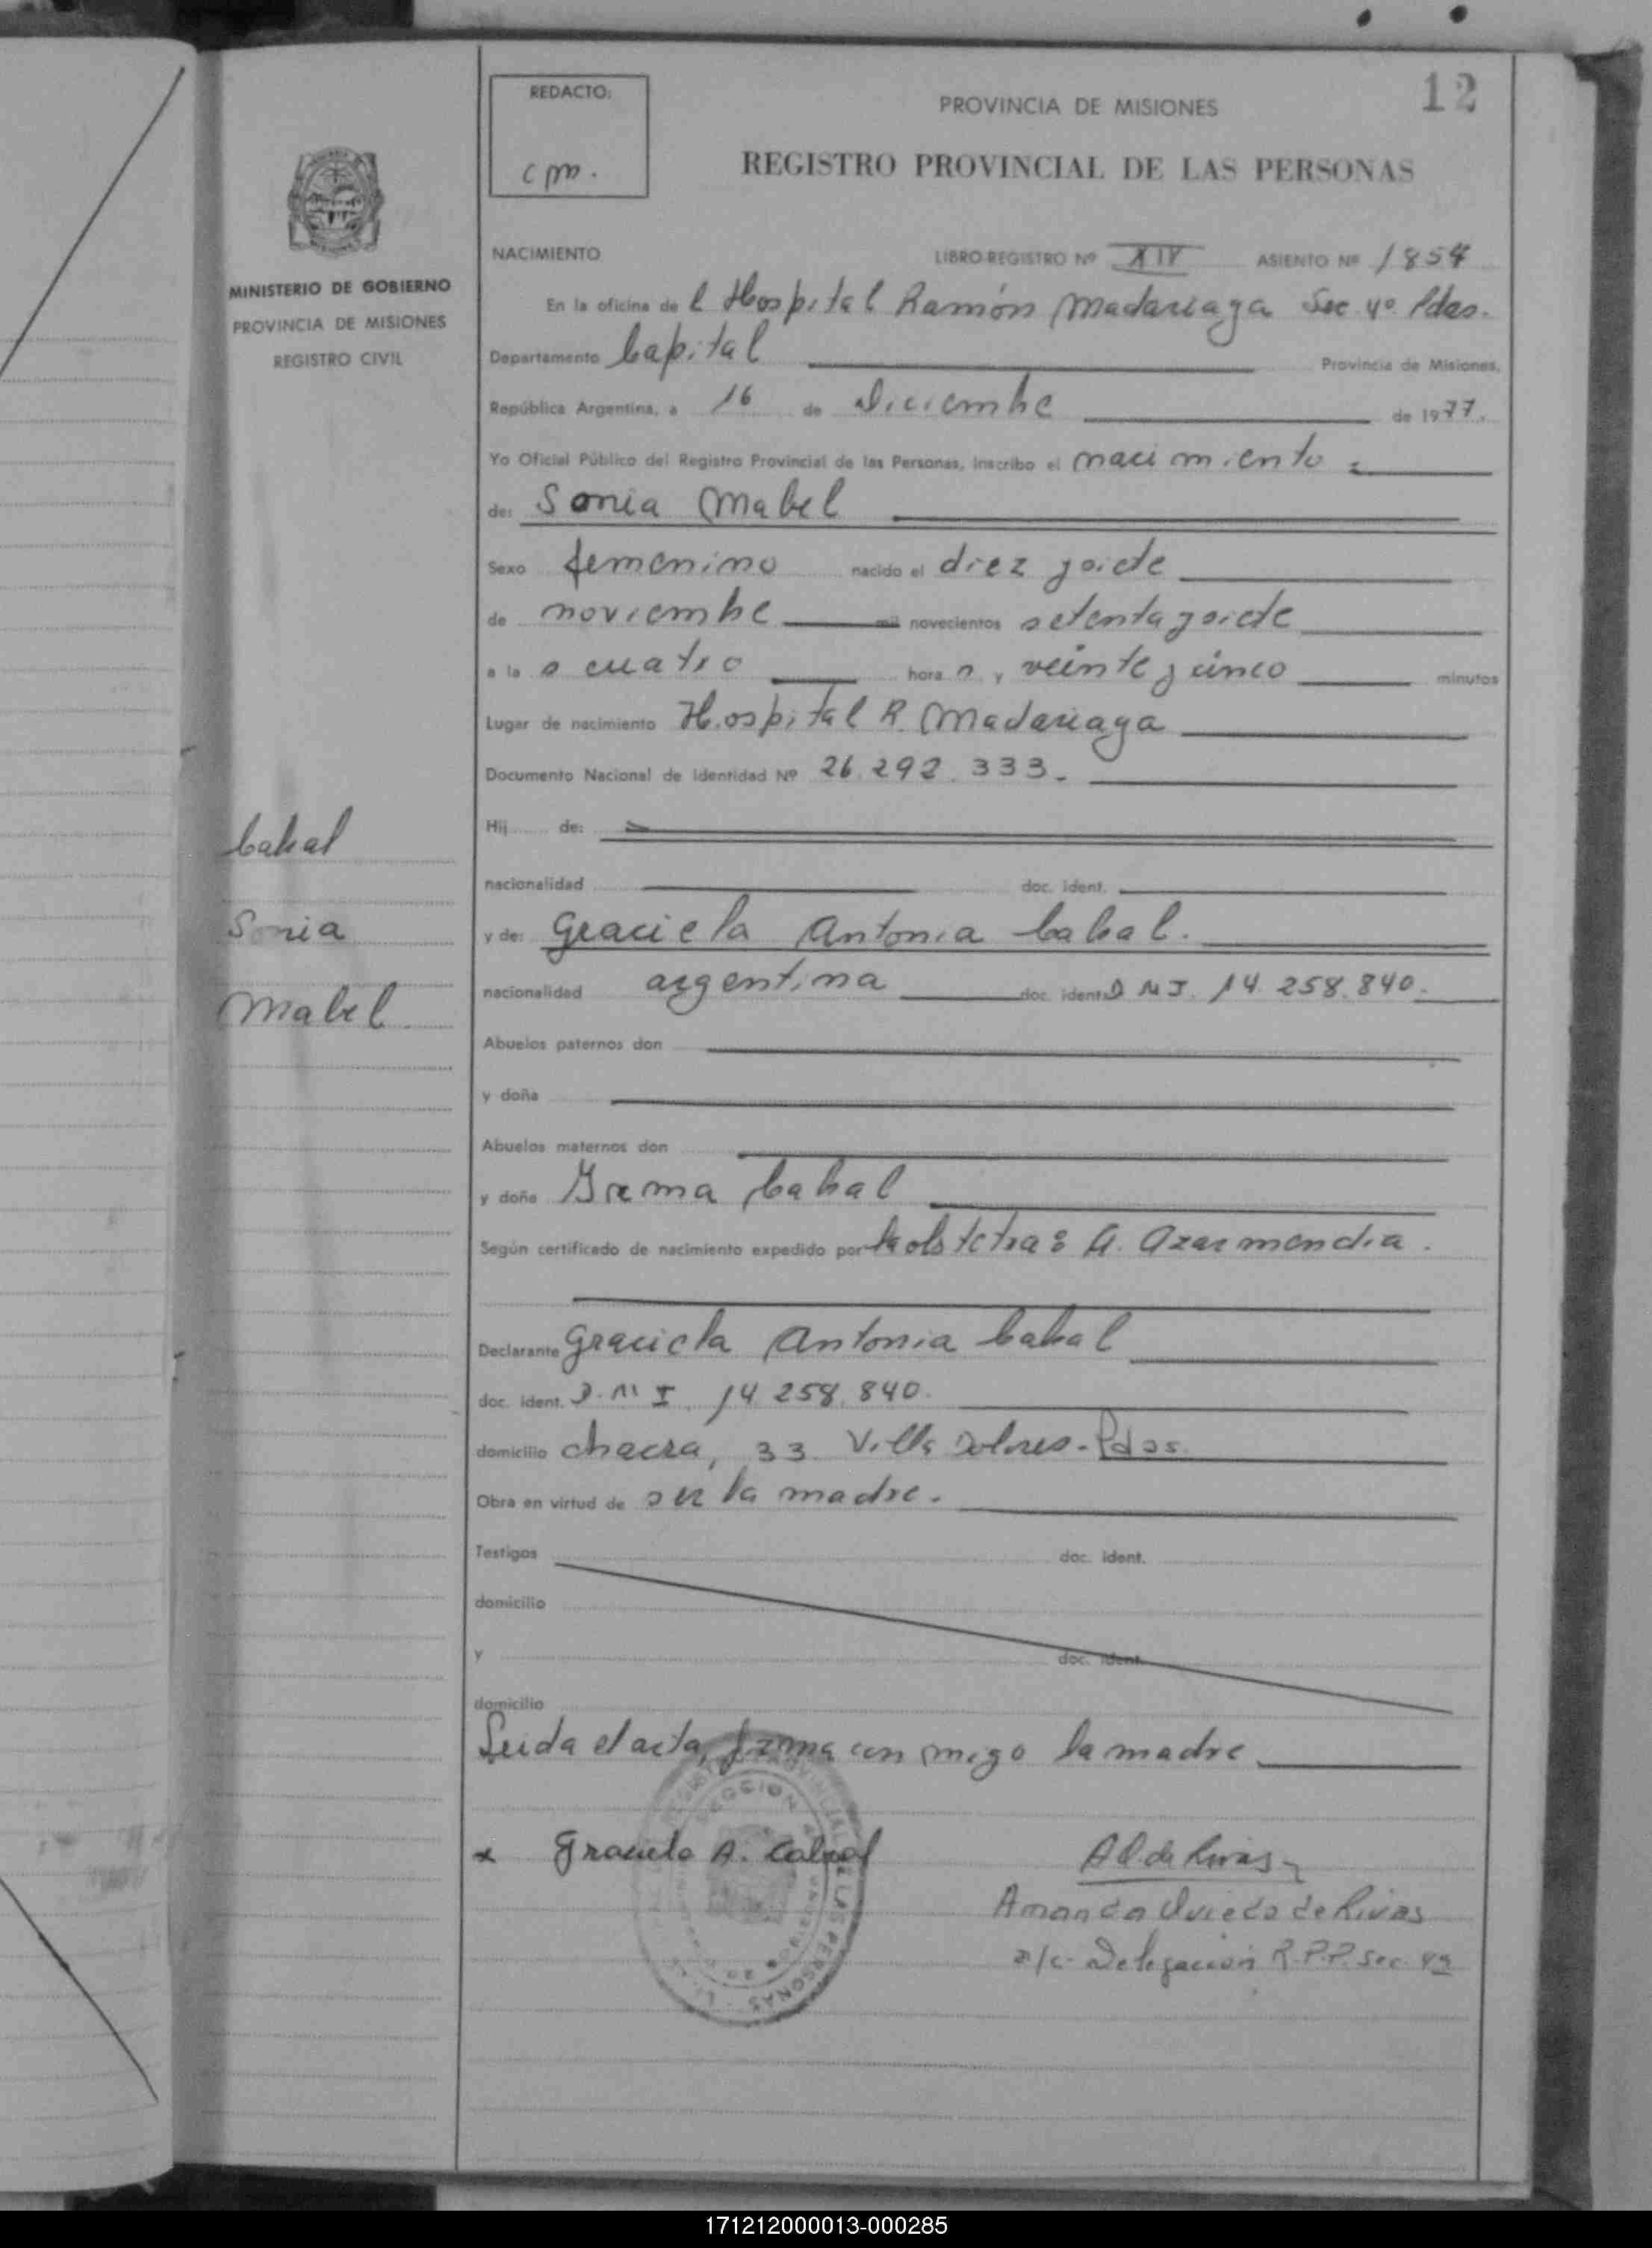 12
REDACTO:
cm.
PROVINCIA DE MISIONES
REGISTRO PROVINCIAL DE LAS PERSONAS
MINISTERIO DE GOBIERNO
PROVINCIA DE MISIONES
REGISTRO CIVIL
NACIMIENTO LIBRO-REGISTRO Nº XIV ASIENTO Nº 1854
En la oficina de l Hospital Ramón Madariaga Sec 4º Pdas.
Departamento Capital Provincia de Misiones,
República Argentina, a 16 de Diciembre de 1977.
Yo Oficial Público del Registro Provincial de las Personas, inscribo el nacimiento
de: Sonia Mabel
Sexo femenino nacido el diez y siete
de noviembre mil novecientos setenta y siete
a la s cuatro hora s y veinte y cinco minutos
Lugar de nacimiento Hospital R. Madariaga
Documento Nacional de Identidad Nº 26.292.333.
Cabral
Sonia
Mabel
Hij de:
nacionalidad doc. ident.
y de: Graciela Antonia Cabral.
nacionalidad argentina doc. ident. D N I. 14.258.840.
Abuelos paternos don
y doña
Abuelos maternos don
y doña Irema Cabral
Según certificado de nacimiento expedido por la obstetra: G. Azarmendia.
Declarante Graciela Antonia Cabral
doc. ident. D.N I. 14.258.840.
domicilio chacra, 33. Villa Dolores - Pdas.
Obra en virtud de ser la madre.
Testigos doc. ident.
domicilio
y doc. ident.
domicilio
Leida el acta, firma con migo la madre
x Graciela A. Cabral
A O de Rivas
Amanda Oviedo de Rivas
a/c. Delegación R.P.P. Sec. 4ª
SECCION
LAS PERSONAS
171212000013-000285